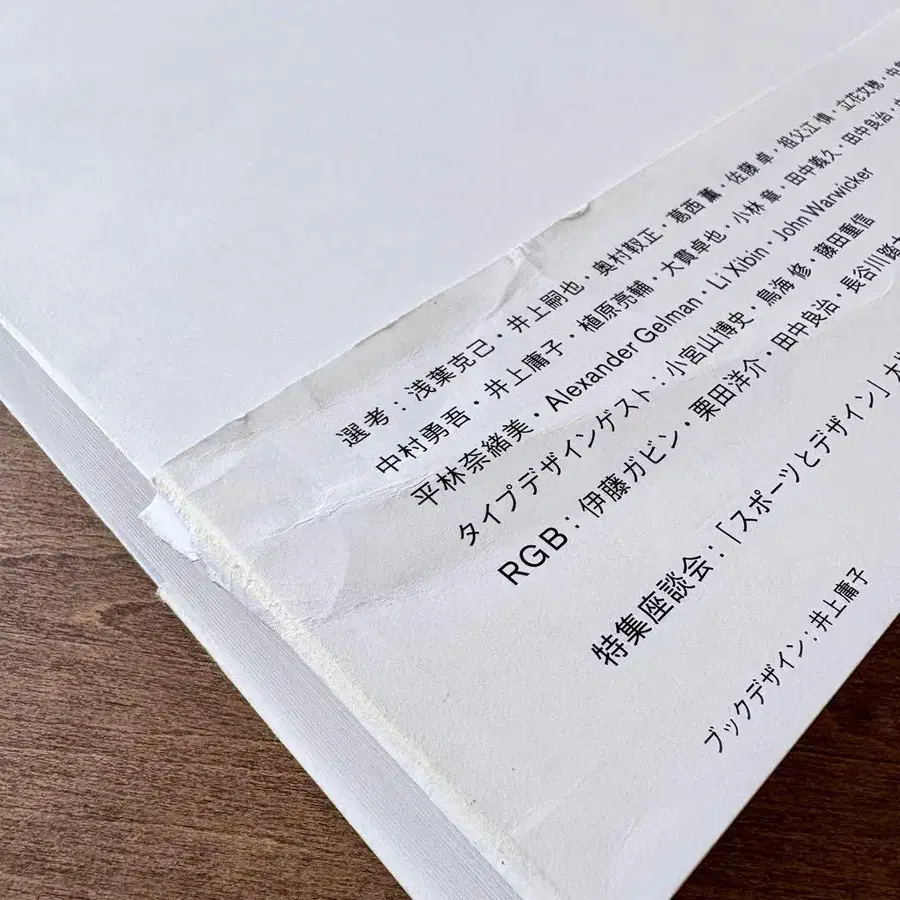 選考：浅葉克己・井上嗣也・奥村靫正・葛西 薫・佐藤 卓・祖父江 慎・立花文穂・
中村勇吾・井上庸子・植原亮輔・大貫卓也・小林 章・田中義久・田中良治・
平林奈緒美・Alexander Gelman・Li Xibin・John Warwicker
タイプデザインゲスト：小宮山博史・鳥海 修・藤田重信
RGB：伊藤ガビン・栗田洋介・田中良治・長谷川踏太
特集座談会：「スポーツとデザイン」
ブックデザイン：井上庸子